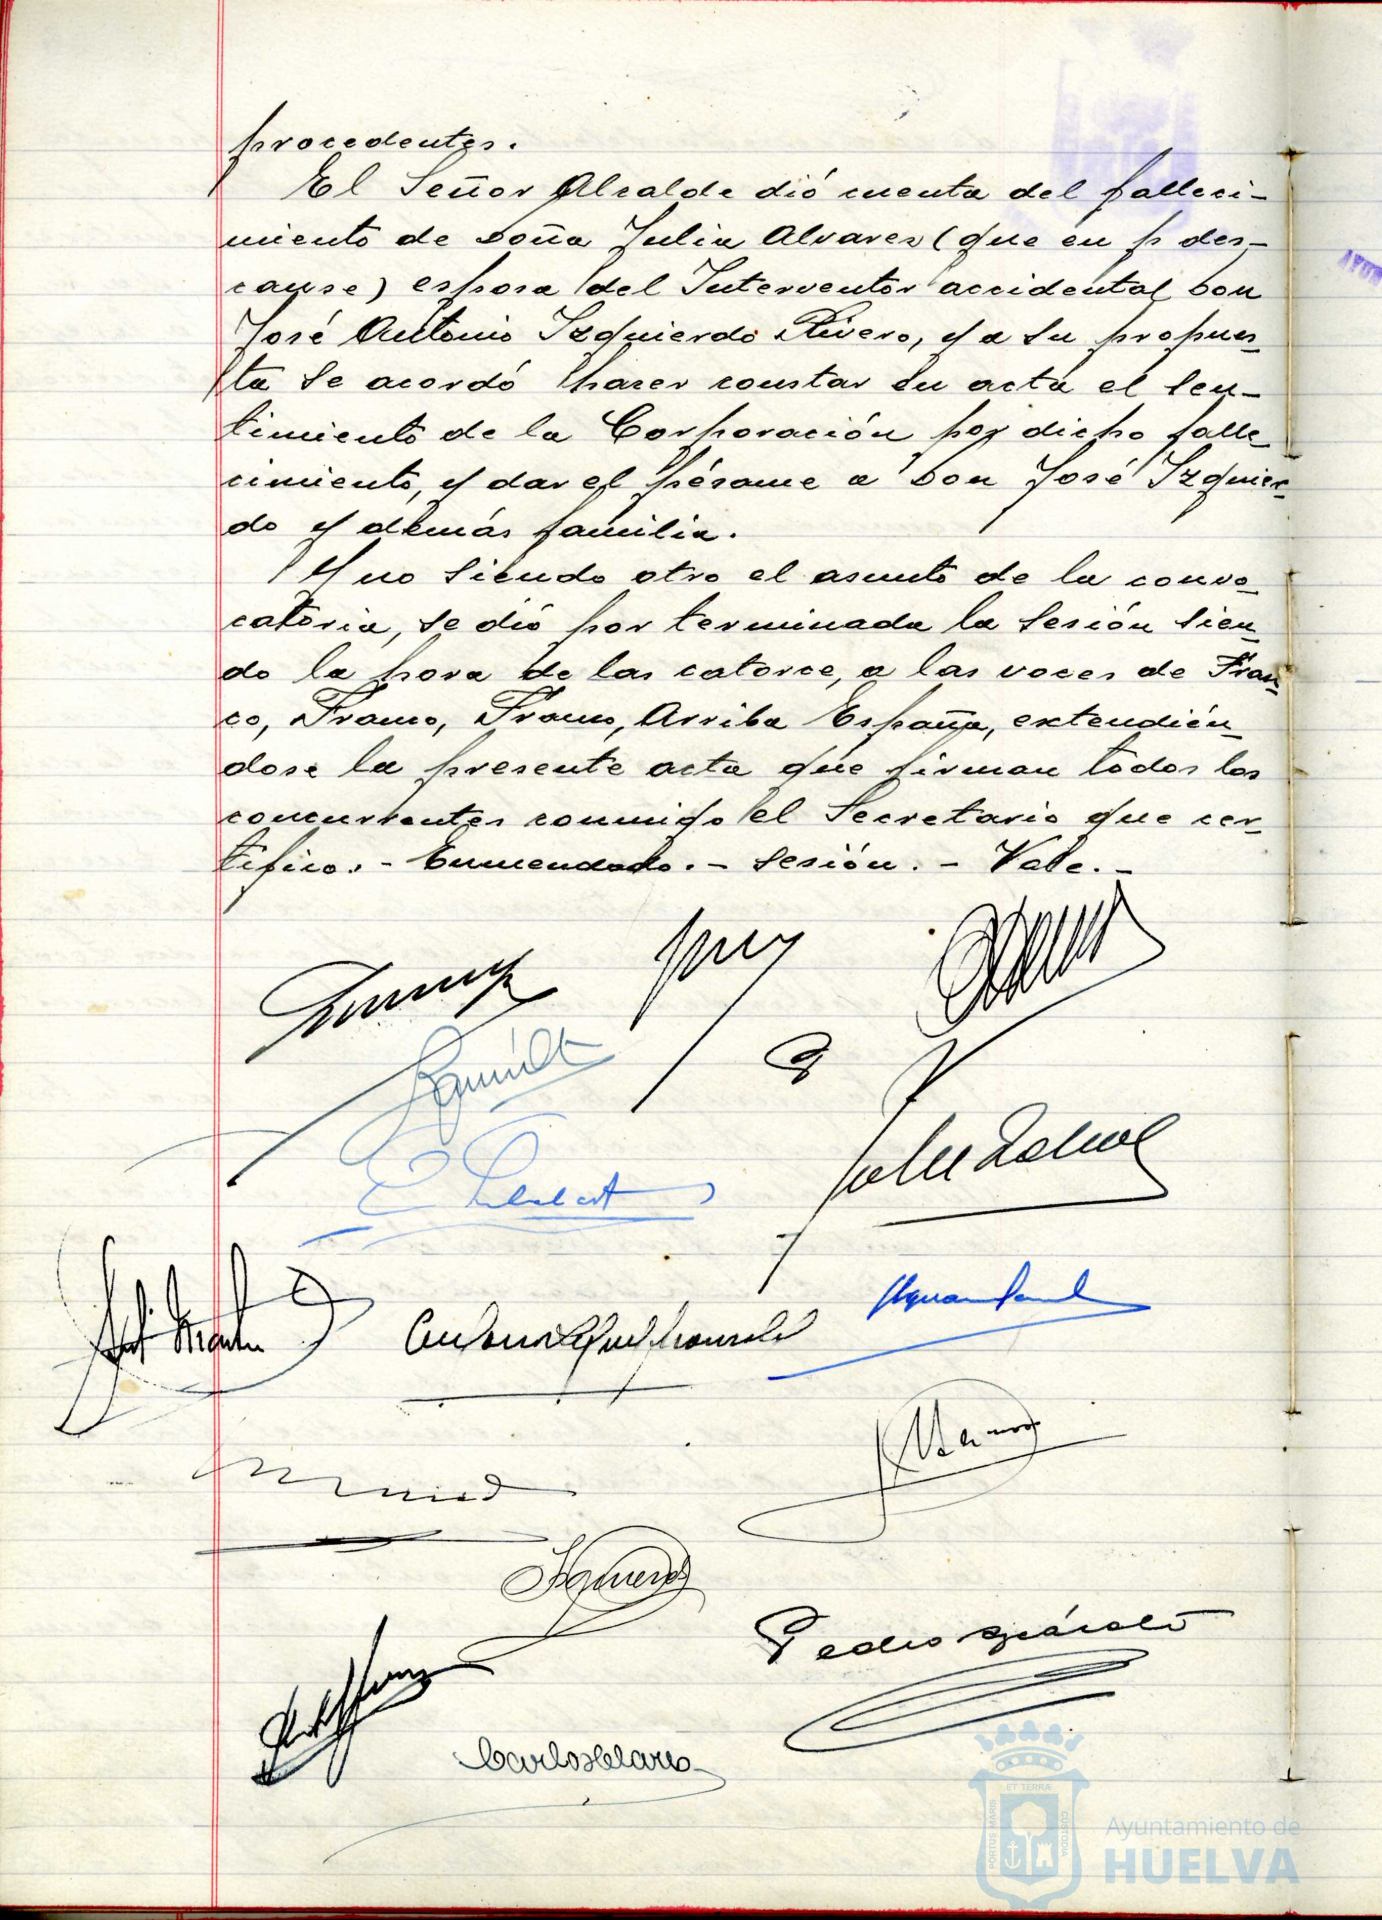 procedentes.
El Señor Alcalde dió cuenta del falleci-
miento de doña Julia Alvarez (que en p des-
canse) esposa del Interventor accidental Don
José Antonio Izquierdo Rivero, y a su propues-
ta se acordó hacer constar en acta el sen-
timiento de la Corporación por dicho falle
cimiento, y dar el pésame a Don José Izquier-
do y demás familia.
Y no siendo otro el asunto de la convo-
catoria, se dió por terminada la sesión sien-
do la hora de las catorce, a las voces de Fran-
co, Franco, Franco, Arriba España, extendién-
dose la presente acta que firman todos los
concurrentes conmigo el Secretario que cer-
tifico.- Enmendado.- sesión.- Vale.-
Pedro
Carlos
ET TERRÆ
PORTUS MARIS
CUSTODIA
Ayuntamiento de
HUELVA